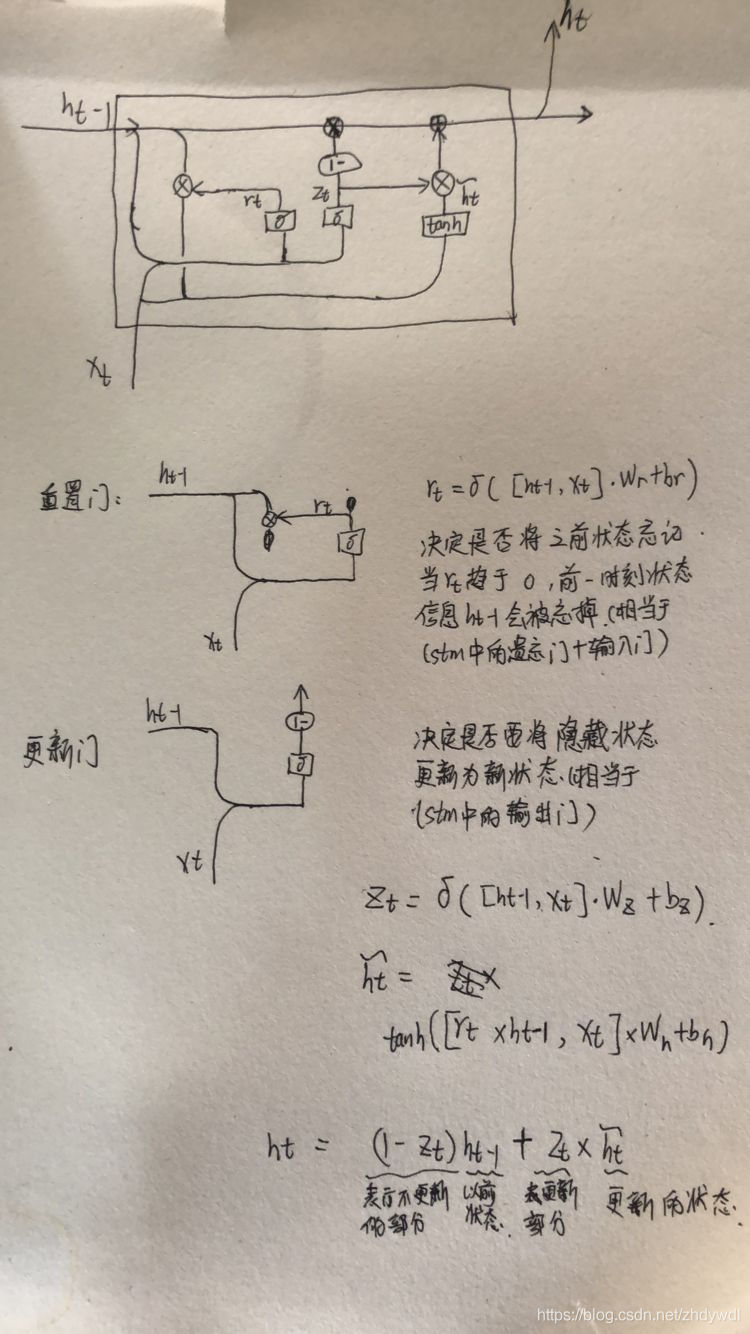 ht
ht-1
1-
rt
zt
h̃t
σ
σ
tanh
xt
重置门:
ht-1
rt
σ
xt
rt = σ([ht-1, xt]·Wr+br)
决定是否将之前状态忘记.
当rt趋于0,前一时刻状态
信息ht-1会被忘掉.(相当于
lstm中的遗忘门+输入门)
更新门
ht-1
1-
σ
xt
决定是否要将隐藏状态
更新为新状态.(相当于
lstm中的输出门)
zt = σ([ht-1, xt]·Wz+bz).
h̃t =
tanh([rt×ht-1, xt]×Wh+bh)
ht = (1-zt)ht-1 + zt×h̃t
表示不更新 以前 表更新 更新的状态.
的部分 状态. 部分
https://blog.csdn.net/zhdywdl